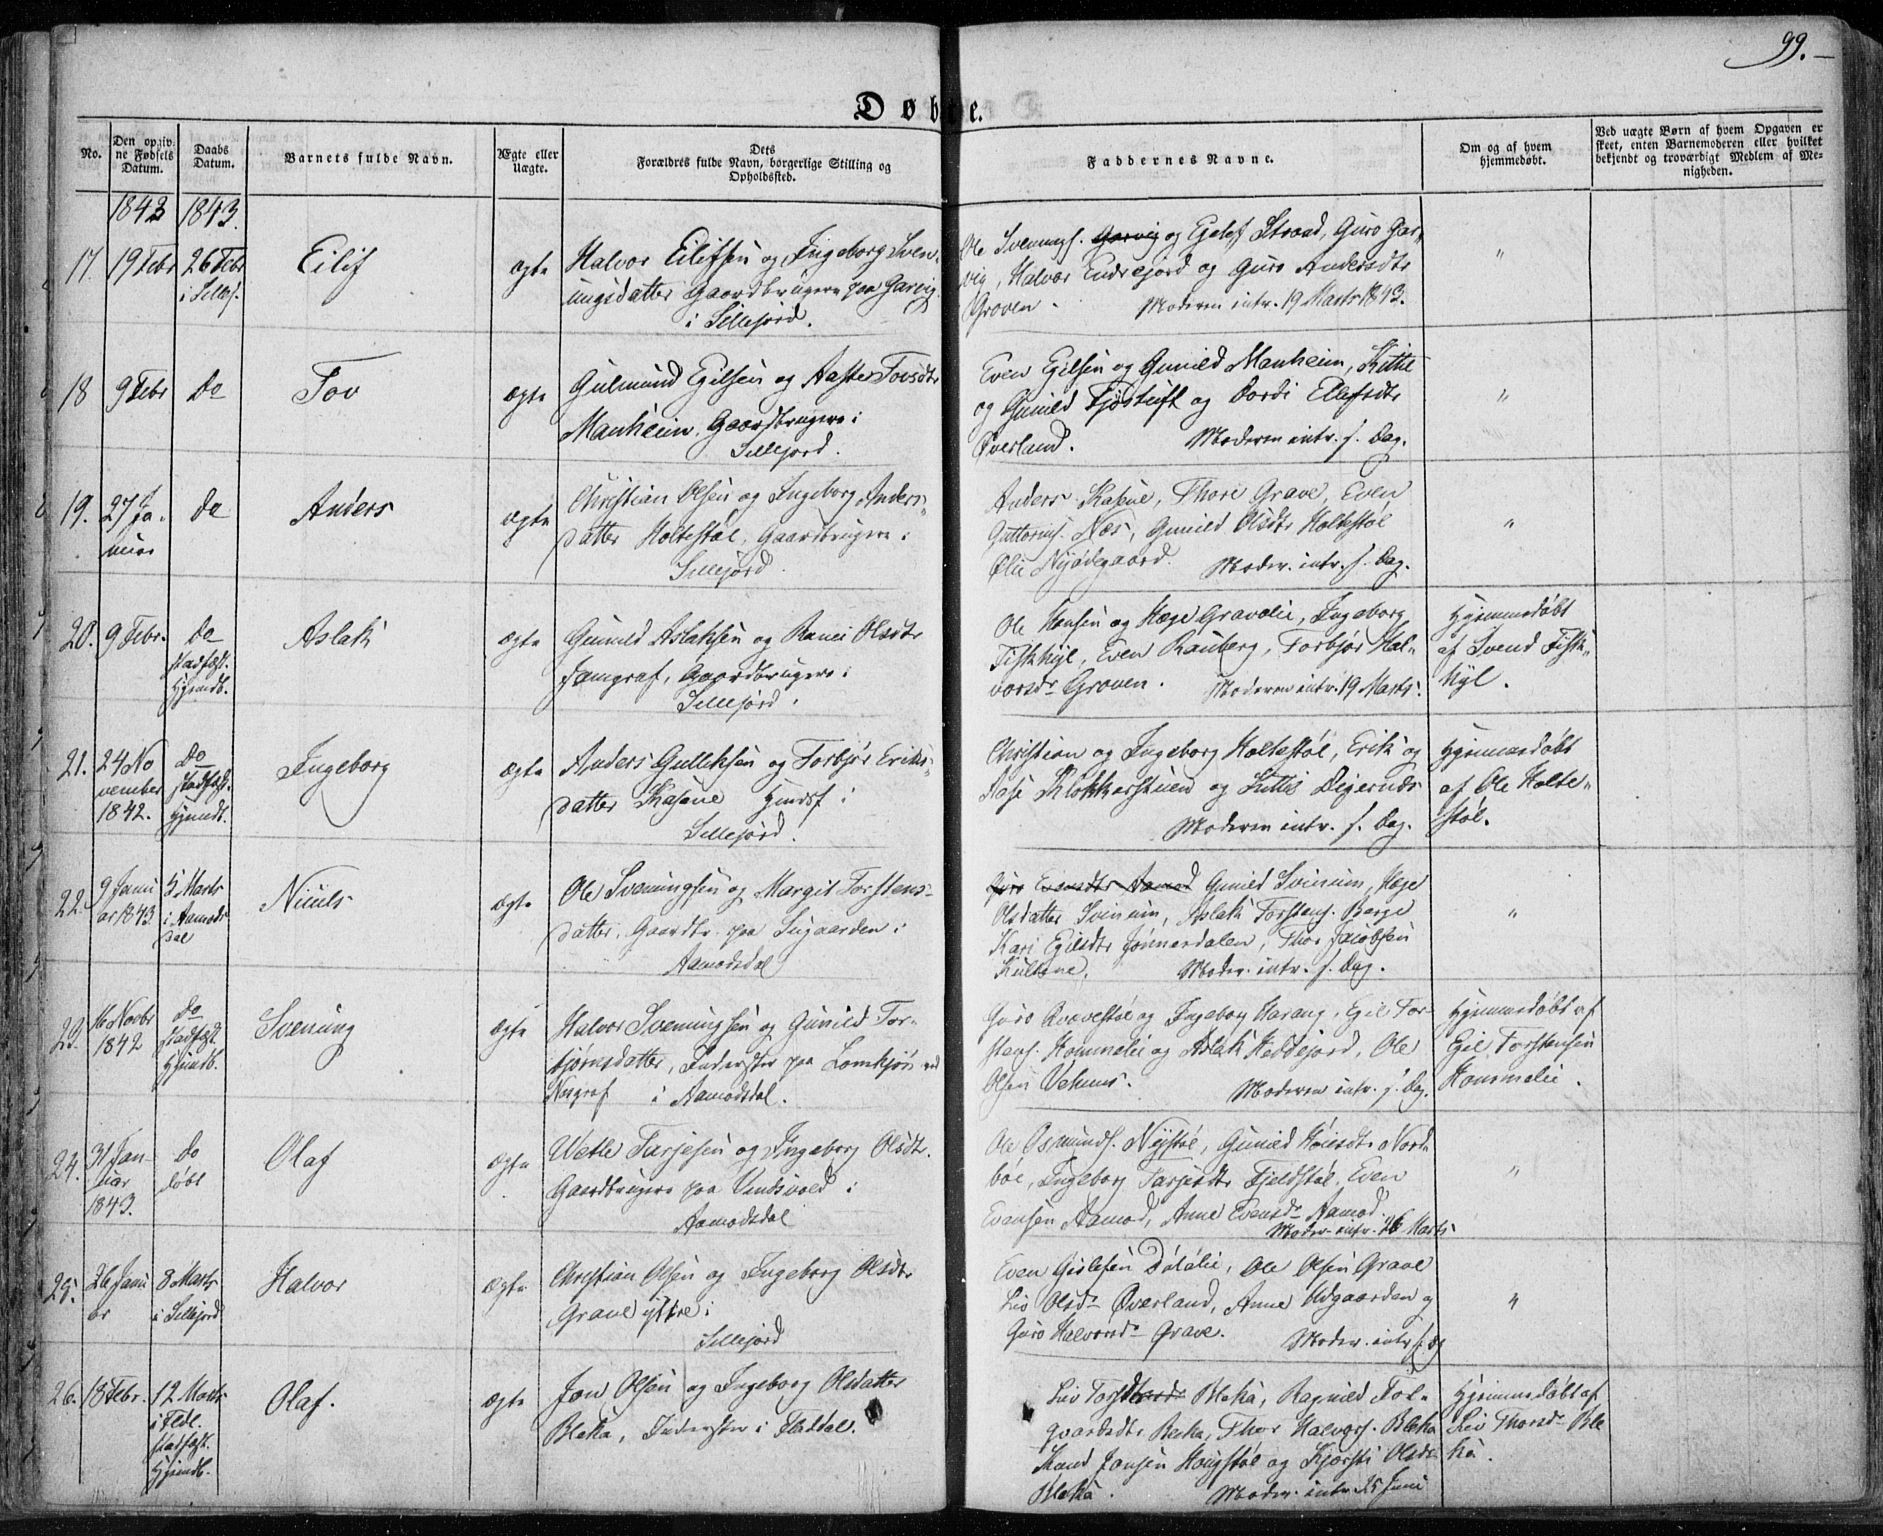 99.
Døbte.
No.
Den opgiv-
ne Fødsels
Datum.
Daabs
Datum.
Barnets fulde Navn.
Ægte eller
Uægte.
Dets
Forældres fulde Navn, borgerlige Stilling og
Opholdssted.
Faddernes Navne.
Om og af hvem
hjemmedøbt.
Ved uægte Børn af hvem Opgaven er
skeet, enten Barnemoderen eller hvilket
bekjendt og troværdigt Medlem af Me-
nigheden.
1843 1843.
17. 19 Febr 26 Febr
i Sillejf.
Eilif
ægte
Halvor Eilifsen og Ingeborg Sven-
ungsdatter Gaardbrugere paa Garvig
i Sillejord.
Ole Svenungs. Garvig og Egelef Strand, Guro Gar-
vig, Halvor Endrejord og Guro Andersdtr
Groven. Moderen intr. 19 Marts 1843.
"
18 9 Febr Do
Tov
ægte
Gulmund Egilsen og Aaste Tovsdtr
Manheim, Gaardbrugere i
Sillejord.
Even Egilsen og Gunild Manheim, Kittil
og Gunild Tjøstuft og Dordi Elefsdtr
Øverland. Moderen intr. s. Dag.
"
19. 27 Ja-
nuar
Do
Anders
ægte
Christian Olsen og Ingeborg Anders-
datter Holtestøl, Gaardbrugere i
Sillejord.
Anders Kasene, Thore Grave, Even
Guttorms. Næs, Gunild Olsdtr Holtestøl
Olie Nyødegaard. Moder. intr. s. Dag.
"
20. 9 Febr. Do
stadfæst.
Hjemdb.
Aslak
ægte
Gunild Aslaksen og Ranei Olsdtr
Jamgraf, Gaardbrugere i
Sillejord.
Ole Hansen og Hæge Gravalie, Ingeborg
Fiskhyl, Even Rauberg, Torbjør Hal-
vorsdr Groven. Moderen intr. 19 Marts.
Hjemmedøbt
af Svend Fisk-
hyl.
21. 24 No
vember
1842.
Do
stadfæst.
Hjemdt.
Ingeborg
ægte
Anders Gulliksen og Torbjør Eriks-
datter Kasene Hmdsf i
Sillejord.
Christian og Ingeborg Holtestøl, Erik og
Aase Klokkerstuen og Kittil Dejernds
Moderen intr. s. Dag.
Hjemmedøbt
af Ole Holte-
støl.
22. 9 Janu
ar 1843
5 Marts
i Aamods
dal
Niuls
ægte
Ole Svenungsen og Margit Torstens-
datter, Gaardbr. paa Sugaarden i
Aamodsdal
Guro Evensdtr Aamod Gunild Svinum, Hæge
Olsdatter Svinum, Aslak Torstens. Berge
Kari Egilsdtr Jønnerdalen, Thor Jacobsen
Kultene, Moder. intr. s. Dag.
"
23. 16 Novbr
1842
Do
stadfæst.
Hjemdb.
Svenung
ægte
Halvor Svenungsen og Gunild Tor-
bjørnsdatter, Inderster paa Lomtjøn ved
Norgraf i Aamodsdal.
Guro Rvævestøl og Ingeborg Harang, Egil Tor-
stens. Hommelie og Aslak Heddejord, Ole
Olsen Vehuus. Moderen intr. s. Dag.
Hjemmedøbt af
Egil Torstensen
Hommelie.
24. 31 Jan-
uar
1843.
Do
døbt
Olaf
ægte
Wetle Tarjesen og Ingeborg Olsdt.
Gaardbrugere paa Vindsvold i
Aamodsdal
Ole Osmunds. Nystøl, Gunild Høiesdtr Nord-
bøe, Ingeborg Tarjesdtr Fjeldstøl, Even
Evensen Aamod, Anne Evensdr Aamod.
Moder. intr. 26 Marts
"
25. 26 Janu
ar
8 Marts
i Sillejord
Halvor
ægte
Christian Olsen og Ingeborg Olsdtr
Grave ystre i
Sillejord
Even Gislesen Dølalie, Ole Olsen Grave
Liv Olsdr Øverland, Anne Udgaarden og
Guro Halvorsdr Grave. Moder. intr s. Dg
"
26. 18 Febr. 12 Marts
i Fldl.
stadfæst.
Hjemdb.
Olaf.
ægte
Jon Olsen og Ingeborg Olsdatter
Bleka, Inderster i Flatdal.
Liv Torsdtr Bleka, Ragnild Tol-
gvardsdtr Bleka, Thor Halvors. Bleka
Knud Jonsen Hougstøl og Kjersti Olsdr
Bleka. Moder. intr. 25 Juni
Hjemmedøbt af
Liv Thorsdr Ble
ka.